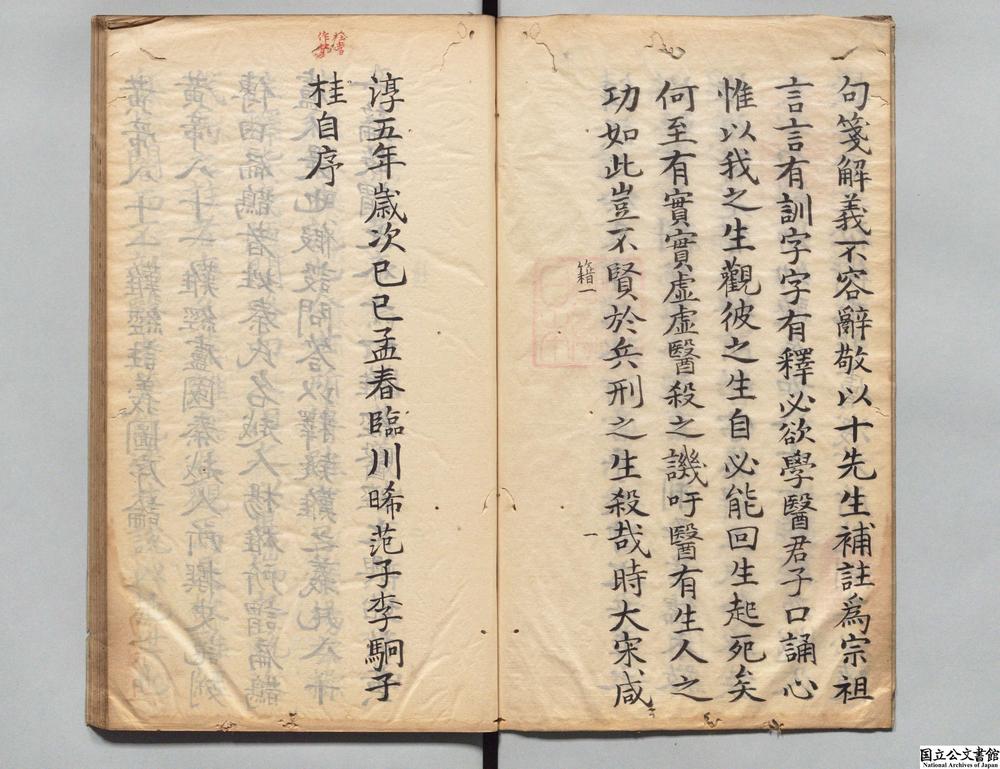 句箋解義不容辭敬以十先生補註為宗祖
言言有訓字字有釋必欲學醫君子口誦心
惟以我之生觀彼之生自必能回生起死矣
何至有實實虛虛醫殺之譏吁醫有生人之
功如此豈不賢於兵刑之生殺哉時大宋咸
籍一
一
淳五年歲次已巳孟春臨川晞范子李駉子
桂自序
国立公文書館
National Archives of Japan